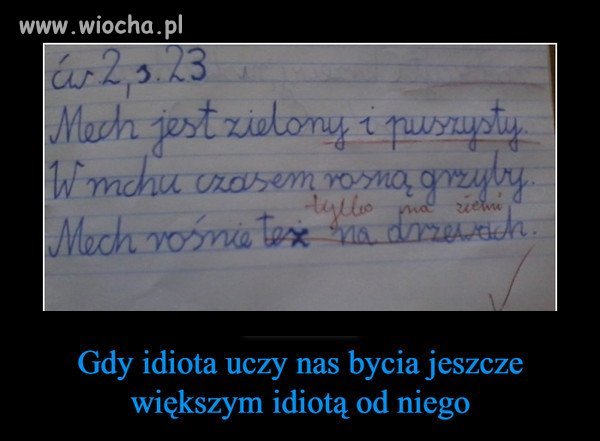 www.wiocha.pl
ćw. 2, s. 23
Mech jest zielony i puszysty.
W mchu czasem rosną grzyby.
tylko na ziemi
Mech rośnie też na drzewach.
Gdy idiota uczy nas bycia jeszcze
większym idiotą od niego